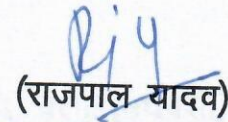 (राजपाल यादव)